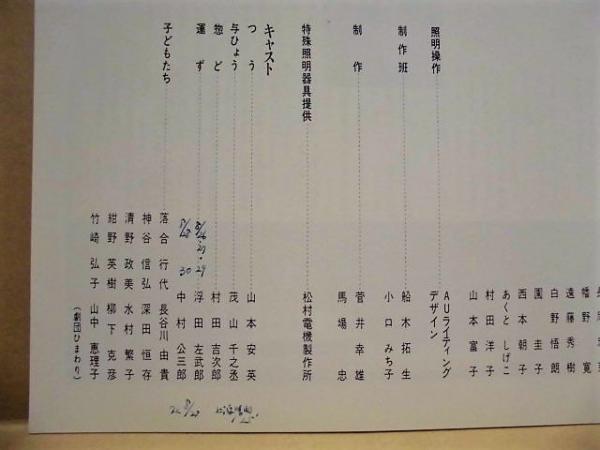 幡野 寛
遠藤秀樹
白野悟朗
園 圭子
西本朝子
あくと しげこ
村田洋子
山本富子
照明操作 AUライティングデザイン
制作班 船木拓生
小口みち子
制作 菅井幸雄
馬場 忠
特殊照明器具提供 松村電機製作所
キャスト
つう 山本安英
与ひょう 茂山千之丞
惣ど 村田吉次郎
運ず 浮田左武郎
中村公三郎
子どもたち 落合行代 長谷川由貴
神谷信弘 深田恒存
清野政美 水村繁子
紺野英樹 柳下克彦
竹崎弘子 山中恵理子
（劇団ひまわり）